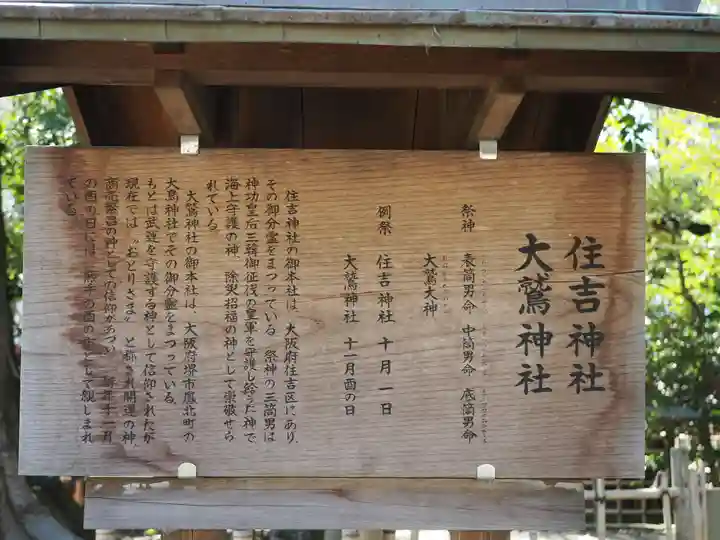 住吉神社
大鷲神社
祭神 表筒男命 中筒男命 底筒男命
大鷲大神
例祭 住吉神社 十月一日
大鷲神社 十一月酉の日
住吉神社の御本社は、大阪府住吉区にあり、
その御分霊をまつっている。祭神の三筒男は
神功皇后三韓御征伐の皇軍を守護し給うた神で、
海上守護の神、除災招福の神として崇敬せら
れている。
大鷲神社の御本社は、大阪府堺市鳳北町の
大鳥神社でその御分霊をまつっている。
もとは武運を守護する神として信仰されたが
現在では〝おとりさま〟と称され開運の神、
商売繁昌の神としての信仰があつい。毎年十一月
の酉の日には、 の酉の市として親しまれ
ている。